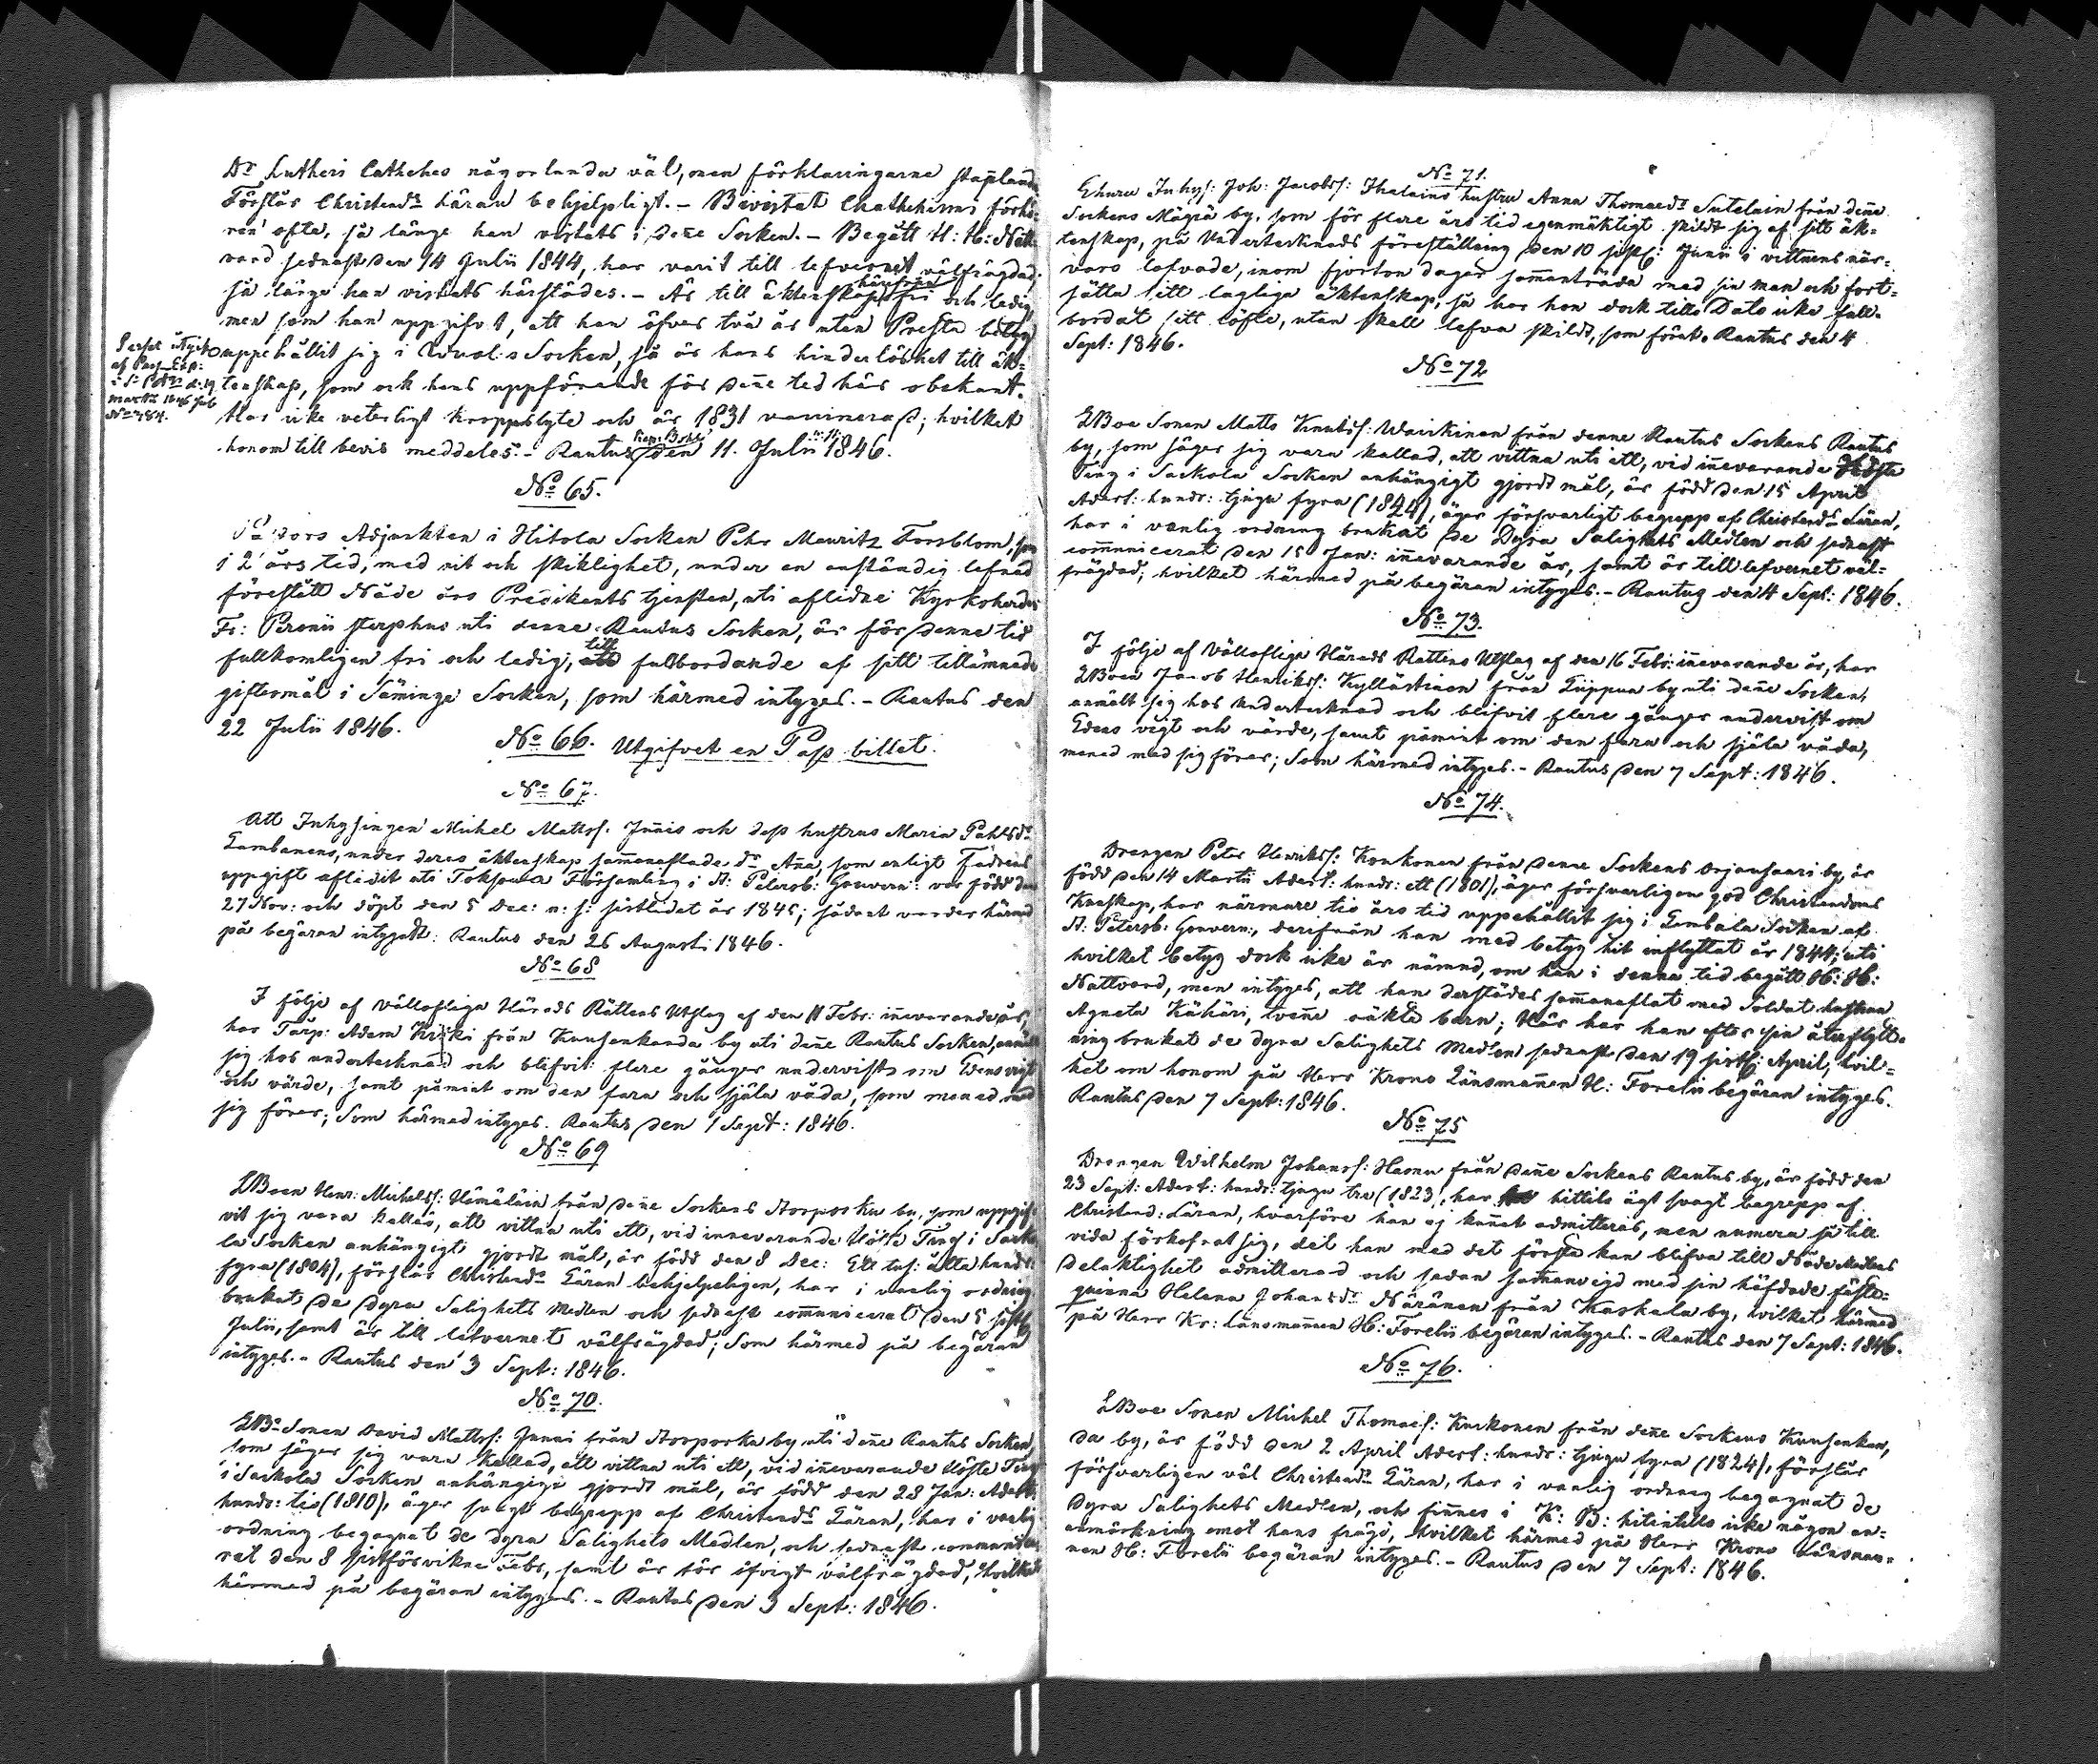 Dr Lutheri Catheches någorlunda väl, men förklaringarne staplande
Förstår Christends Läran behjelpligt. – Bivistat Chatkekismi förhö-
ren ofta, så länge han vistats i denne Socken. – Begått H: H: Natt-
vard sednast den 14 Julii 1844, har varit till lefvernet välfrägdad,
så länge han vistats härstädes. – Är till äktenskap härifrån fri och ledig
men som han uppgifvit, att han öfver två år utan Presta betyg
uppehållit sig i Socken, så är hans hinderlöshet till äk-
tenskap, som ock hans uppförande för denne tid här obekant.
Har icke veterligt kroppslyte och är 1831 vaccinerad; hvilket
honom till bevis meddeles. – Rautus den 11. Julii 1846.
af Pass Exp:
No 484.
No 65.
Vors Adjunkten i Hitola Socken Pehr Mauritz Forsblom, som
i 2 års tid, med nit och skiklighet, under en anständig lefnad
förestått Nåde års Predikants tjensten, uti aflidne Kyrkoherden
Fr: Peronii sterphus uti denne Rautus Socken, är för denne tid
fullkomligen fri och ledig, till fullbordande af sitt tillämnade
giftermål i Säminge Socken, som härmed intyges. – Rautus den
22 Julii 1846.
No 66. Utgifvet en Pass billet.
No 67.
Att Inhysingen Michel Mattss. Junis och dess hustrus Maria Pahlsdr
Lambanens, under deras äktenskap sammanaflade dr Anna, som enligt Fadrens
uppgift aflidit uti Toksowa Församling i St: Petersb: Gouvern: var född den
27 Nov: och döpt den 5 Dec: n: s: sistledet år 1845; sådant varder härmed
på begäran intygadt: Rautus den 26 Augusti 1846.
No 68
I följe af Vällofliga Härads Rättens Utslag af den 11 Febr: innevarande år,
har Torp: Adam Kriski från Kunsenkanda by uti denne Rautus Socken, anmält
sig hos undertecknad och blifvit flere gånger undervist om Edens vigt
och värde, samt påmint om den fara och själa våda, som mened med
sig förer; Som härmed intyges. Rautus den 1 Sept: 1846.
No 69
LBoen Henr: Michelss: Hämäläin från denne Sockens Noosporku by, som uppgif-
vit sig vara kallad, att vittna uti ett, vid innevarande Höste Ting i Sacko-
la Socken anhängigt gjordt mål, är född den 8 Dec: Ett tus: åtta hundr:
fyra (1804), förstår Christends Läran behjelpeligen, har i vanlig ordning
brukat de dyra Salighets Medlen och sednast communicerat den 5 sistl:
Julii, samt är till lefvernet välfrägdad; Som härmed på begäran
intyges. – Rautus den 3 Sept: 1846.
No 70.
LBo Sonen David Mattss: Junni från Noosporku by uti denne Rautus Socken,
som säger sig vara kallad, att vittna uti ett, vid innevarande Höste Ting
i Sackola Socken anhängigt gjordt mål, är född den 28 Jan: Aderton
hundr: tio (1810), äger svagt begrepp af Christends Läran, har i vanlig
ordning begagnat de dyra Salighets Medlen, och sednast communice-
rat den 8 sistförvikne Febr, samt är för öfrigt välfrägdad; Hvilket
härmed på begäran intyges. – Rautus den 3 Sept: 1846.
No 71.
Ehuru Inhys: Joh: Jacobss: Ihalains hustru Anna Thomaedr Sutelain från denne
Sockens Mägrä by, som för flere års tid egenmäktigt skildt sig af sitt äk-
tenskap, på Undertecknads föreställning den 10 sistl: Junii i vittnens när-
varo lofvade, inom fjorton dagar sammanträda med sin man och fort-
sätta sitt lagliga äktenskap, så har hon dock tills Dato icke full-
bordat sitt löfte, utan skall lefva skildt, som förut. Rautus den 4
Sept: 1846.
No 72
LBoe Sonen Matts Knutss: Waickinen från denne Rautus Sockens Rautus
by, som säger sig vara kallad, att vittna uti ett, vid innevarande Höste
Ting i Sackola Socken anhängigt gjordt mål, är född den 15 April
Adert: hundr: tjugu fyra (1824), äger försvarligt begrepp af Christends Läran,
har i vanlig ordning brukat de Dyra Salighets Medlen och sednast
communicerat den 15 Jan: innevarande år, samt är till lefvernet väl-
frägdad; hvilket härmed på begäran intyges. – Rautus den 4 Sept: 1846.
No 73.
I följe af Vällofliga Härads Rättens Utslag af den 16 Febr: innevarande år, har
LBoen Jacob Henrikss: Kyllästinen från Liippua by uti denne Socken,
anmält sig hos undertecknad och blifvit flere gånger undervist om
Edens vigt och värde, samt påmint om den fara och själa våda,
mened med sig förer; Som härmed intyges. – Rautus den 7 Sept: 1846.
No 74.
Drengen Peter Henrikss: Konkonen från denne Sockens Orjansaari by, är
född den 14 Martii Adert: hundr: ett (1801), äger försvarligen god Christendoms
Kunskap, har närmare tio års tid uppehållit sig i Lembala Socken af
St: Petersb: Gouvern:, derifrån han med betyg hit inflyttat år 1844; uti
hvilket betyg dock icke är nämnd, om han i denna tid begått H: H:
Nattvard, men intyges, att han derstädes sammanaflat med Soldat hustrun
Agneta Kähäri, tvenne oäkta barn; Här har han efter sin återflytt-
ning brukat de dyra Salighets Medlen sednast den 19 sistl: April, hvil-
ket om honom på Herr Krono Länsmannen H: Forelii begäran intyges.
Rautus den 7 Sept: 1846.
No 75
Drengen Wilhelm Johanss: Hasnu från denne Sockens Rautus by, är född den
23 Sept: Adert: hundr: tjugu tre (1823, har hittils ägt svagt begrepp af
Christend: Läran, hvarföre han ej kunnat admitteras, men numera så till
vida förkofrat sig, det han med det första kan blifva till Nåde Medlens
delaktighet admitterad och sedan sammanvigd med sin häfdade fäste-
qvinna Helena Johansdr Näränen från Kaskala by, hvilket härmed
på Herr Kr: Länsmannen H: Forelii begäran intyges. – Rautus den 7 Sept: 1846.
No 76.
LBoe Sonen Michel Thomaes: Kurkonen från denne Sockens Kunsenkan,
da by, är född den 2 April Adert: hundr: tjugu fyra (1824), förstår
försvarligen väl Christends Läran, har i vanlig ordning begagnat de
Dyra Salighets Medlen, och finnes i K: B: hitintills icke någon an-
anmärkning emot hans frägd, hvilket härmed på Herr Krono Länsman-
nen H: Forelii begäran intyges. – Rautus den 7 Sept: 1846.